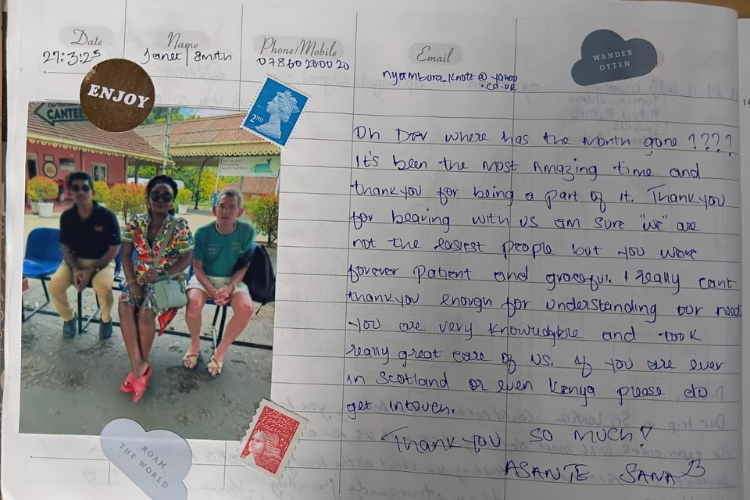 Date
Name
Phone/Mobile
Email
27:3:25
Janet / Smith
07860 2000 20
WANDER
OFTEN
ENJOY
CANTEE
2ND
Oh Dev where has the month gone ????
It's been the most Amazing time and
thank you for being a part of it. Thank you
for bearing with us am sure "we" are
not the easiest people but you were
forever patient and graceful. I really cant
thank you enough for understanding our need
you are very knowledgeble and took
really great care of us. If you are ever
in Scotland or even Kenya please do
get intouch.
Thank you so much!
ASANTE SANA
ROAM
THE WORLD